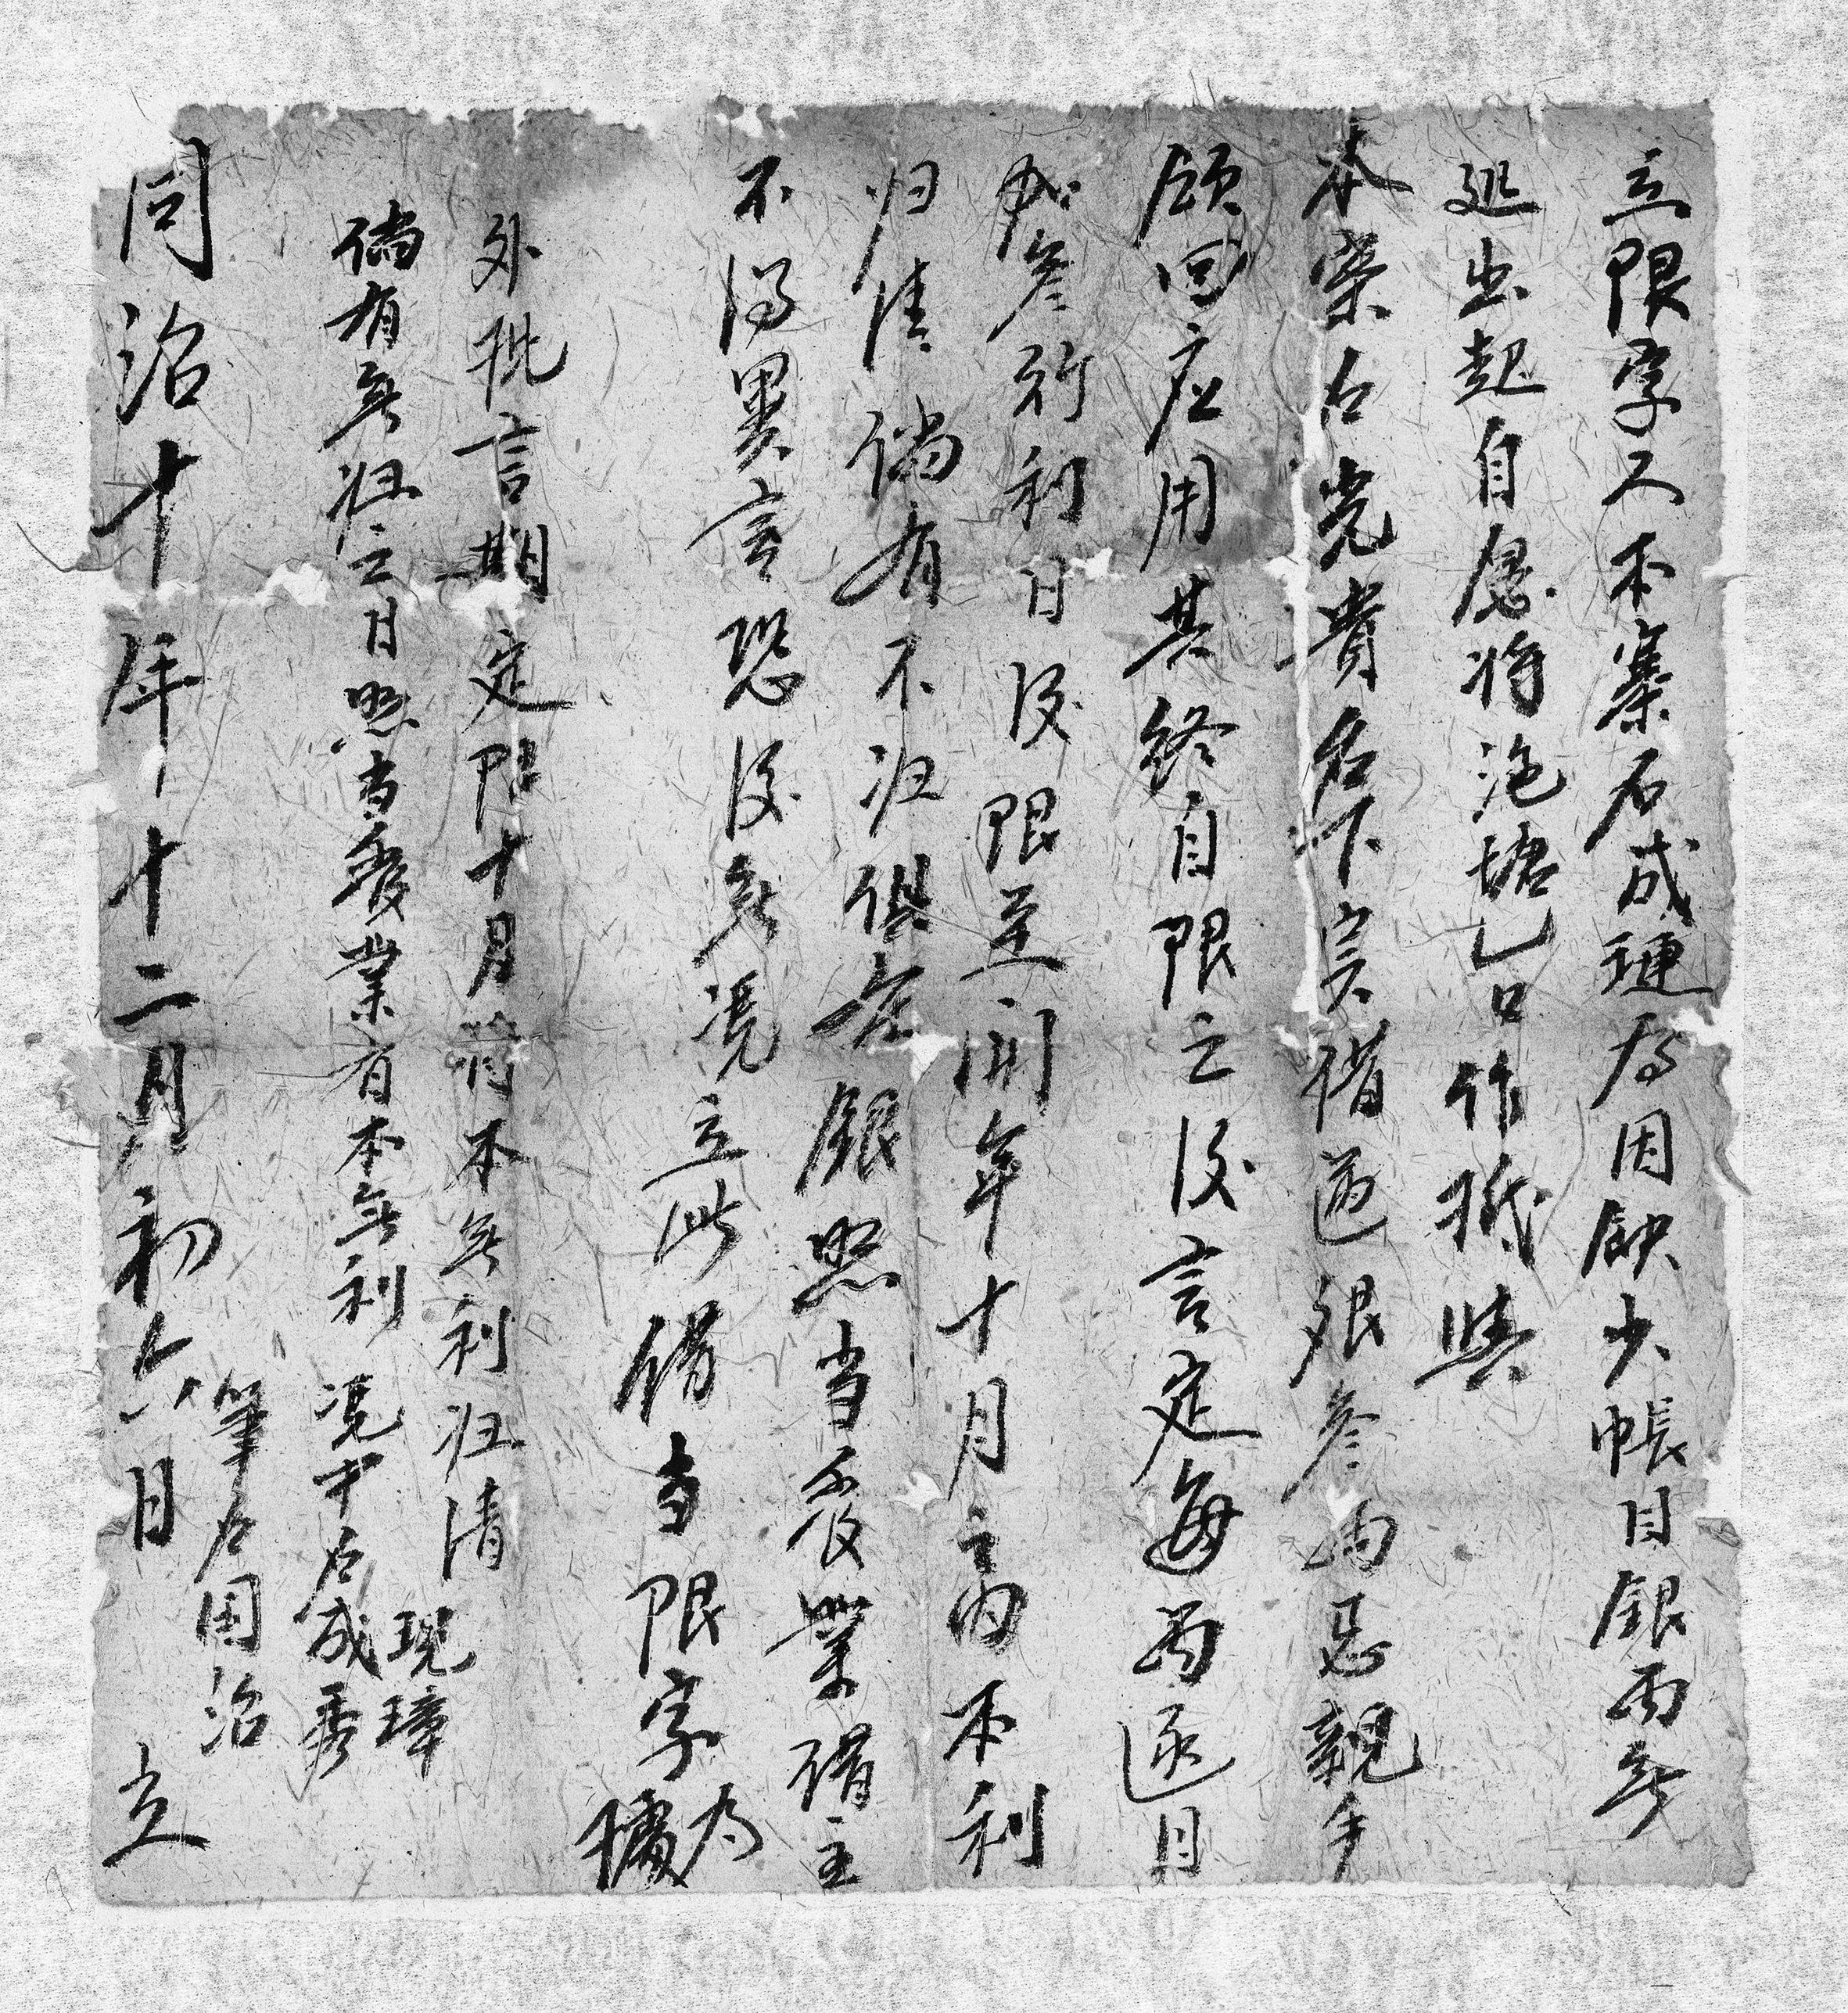 立限字人本寨石成璉為因缺少帳目銀兩無
処出起自愿将泡塘乙口作抵與
本寨石光貴名下实借過银叁両忌親手
領回应用其终自限之後言定每両逐月
加叁行利日後限至開年十月之內本利
归清倘有不归俱在銀照当發業借主
不得異言恐後無凴立此借當限字為據
外批言期定限十月 本無利归清
倘有無归之日照当發業有本無利 凴中石成秀 現璋
筆石国治
同治十年十二月初六日 立